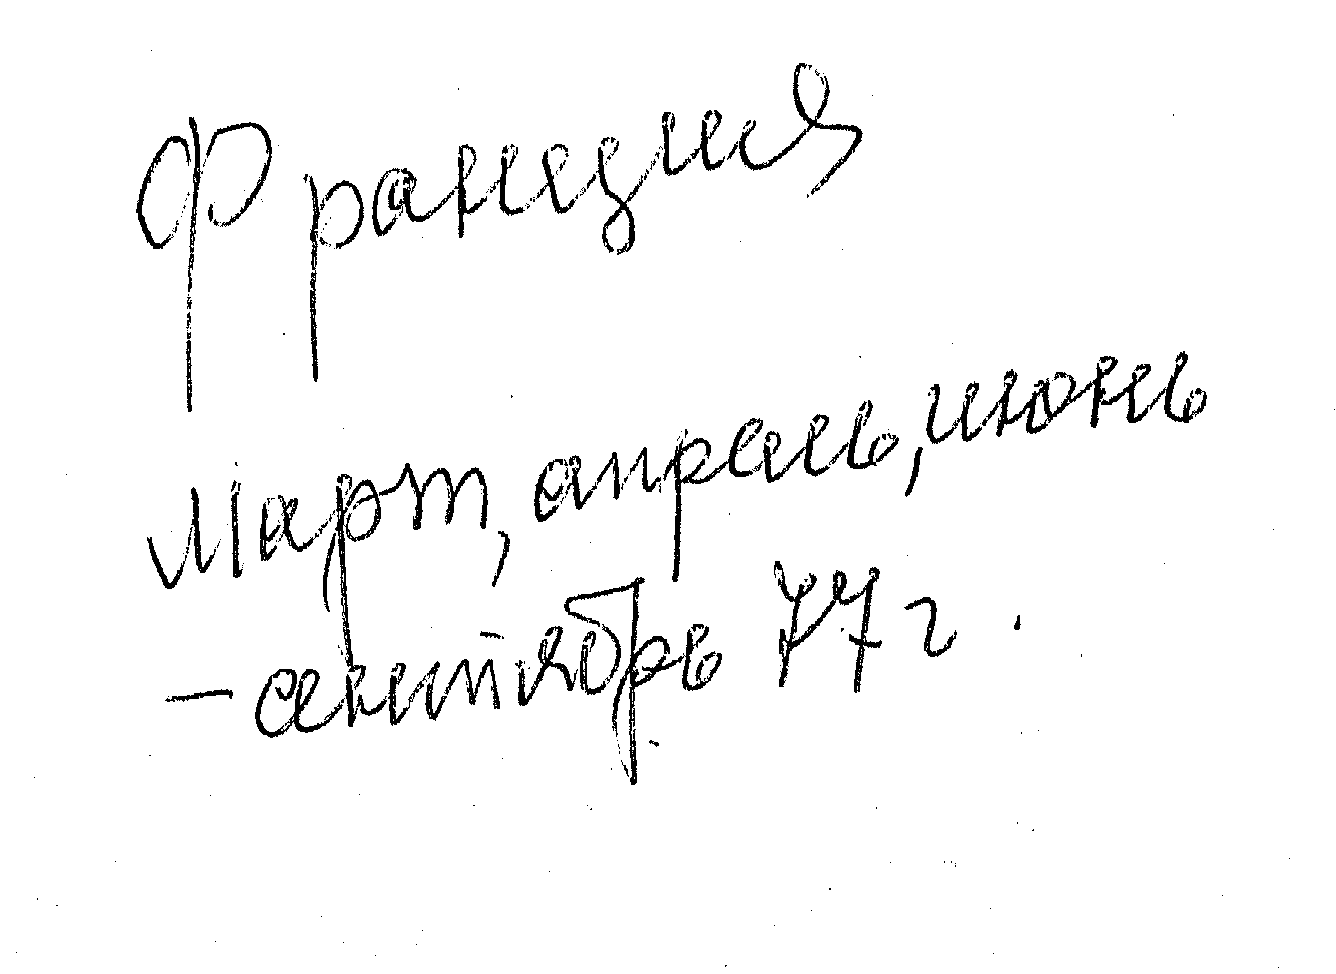 Франция
Март, апрель, июнь
- сентябрь 77 г.